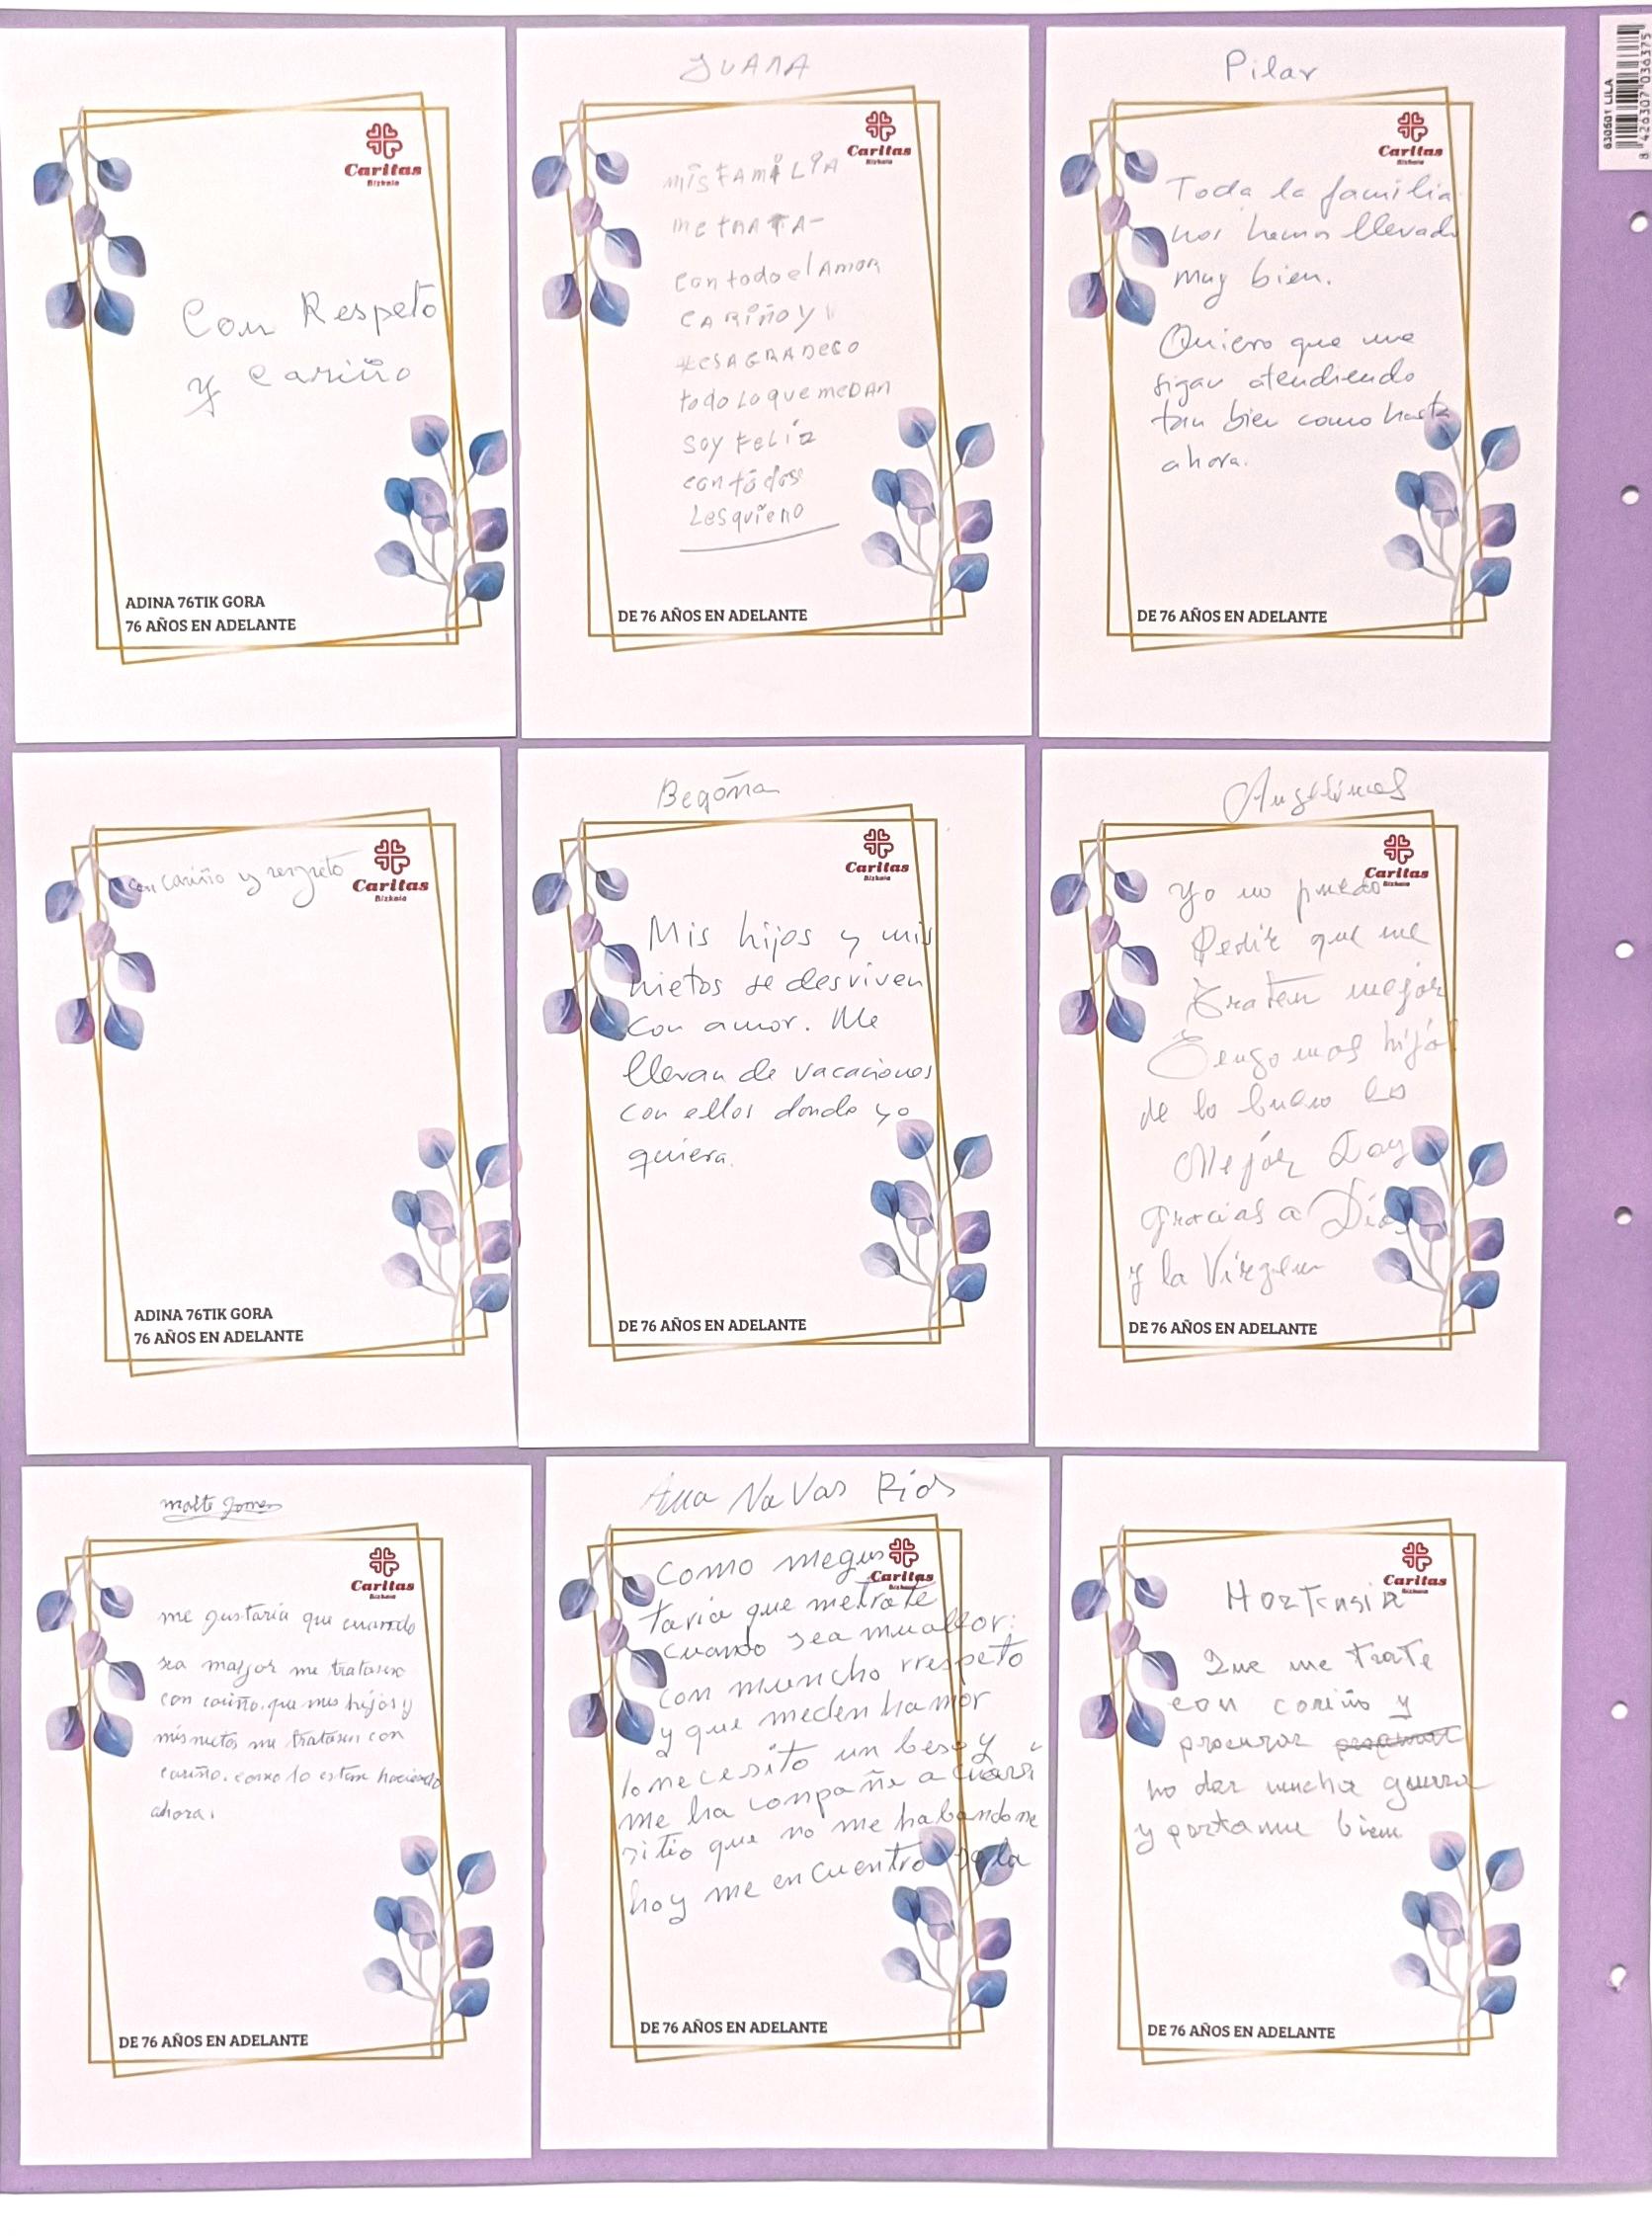 Caritas
Bizkaia
Con Respeto
y Cariño
ADINA 76TIK GORA
76 AÑOS EN ADELANTE
JUANA
Caritas
Bizkaia
MiSFAMiLiA
metRATA-
contodo elAmoR
CARiÑO Y
LESAGRADECO
todo Lo que meDAN
SOY FELIZ
con todos
Lesquiero
DE 76 AÑOS EN ADELANTE
Pilar
Caritas
Bizkaia
Toda la familia
nos hemos llevado
muy bien.
Quiero que me
sigan atendiendo
tan bien como hasta
ahora.
DE 76 AÑOS EN ADELANTE
con cariño y respeto
Caritas
Bizkaia
ADINA 76TIK GORA
76 AÑOS EN ADELANTE
Begoña
Caritas
Bizkaia
Mis hijos y mis
nietos se desviven
con amor. Me
llevan de vacaciones
con ellos donde yo
quiera.
DE 76 AÑOS EN ADELANTE
Angelines
Caritas
Bizkaia
Yo no puedo
Pedir que me
Traten mejor
Tengo unos hijos
de lo bueno lo
Mejor Doy
gracias a Dios
y la Virgen
DE 76 AÑOS EN ADELANTE
Caritas
Bizkaia
me gustaria que cuando
sea mayor me tratasen
con cariño. que mis hijos y
mis nietos me tratasen con
cariño. como lo estan haciendo
ahora.
DE 76 AÑOS EN ADELANTE
Ana Navas Rios
Caritas
Bizkaia
Como megus
taria que metrate
cuando sea muallor:
con muncho rrespeto
y que meden hamor
lo necesito un beso y
me ha conpañe a cuarsi
sitio que no me habandone
hoy me encuentro sola
DE 76 AÑOS EN ADELANTE
Caritas
Hortensia
Que me trate
con cariño y
procurar
no dar mucha guerra
y portame bien
DE 76 AÑOS EN ADELANTE
630501 LILA
8 426307 036375